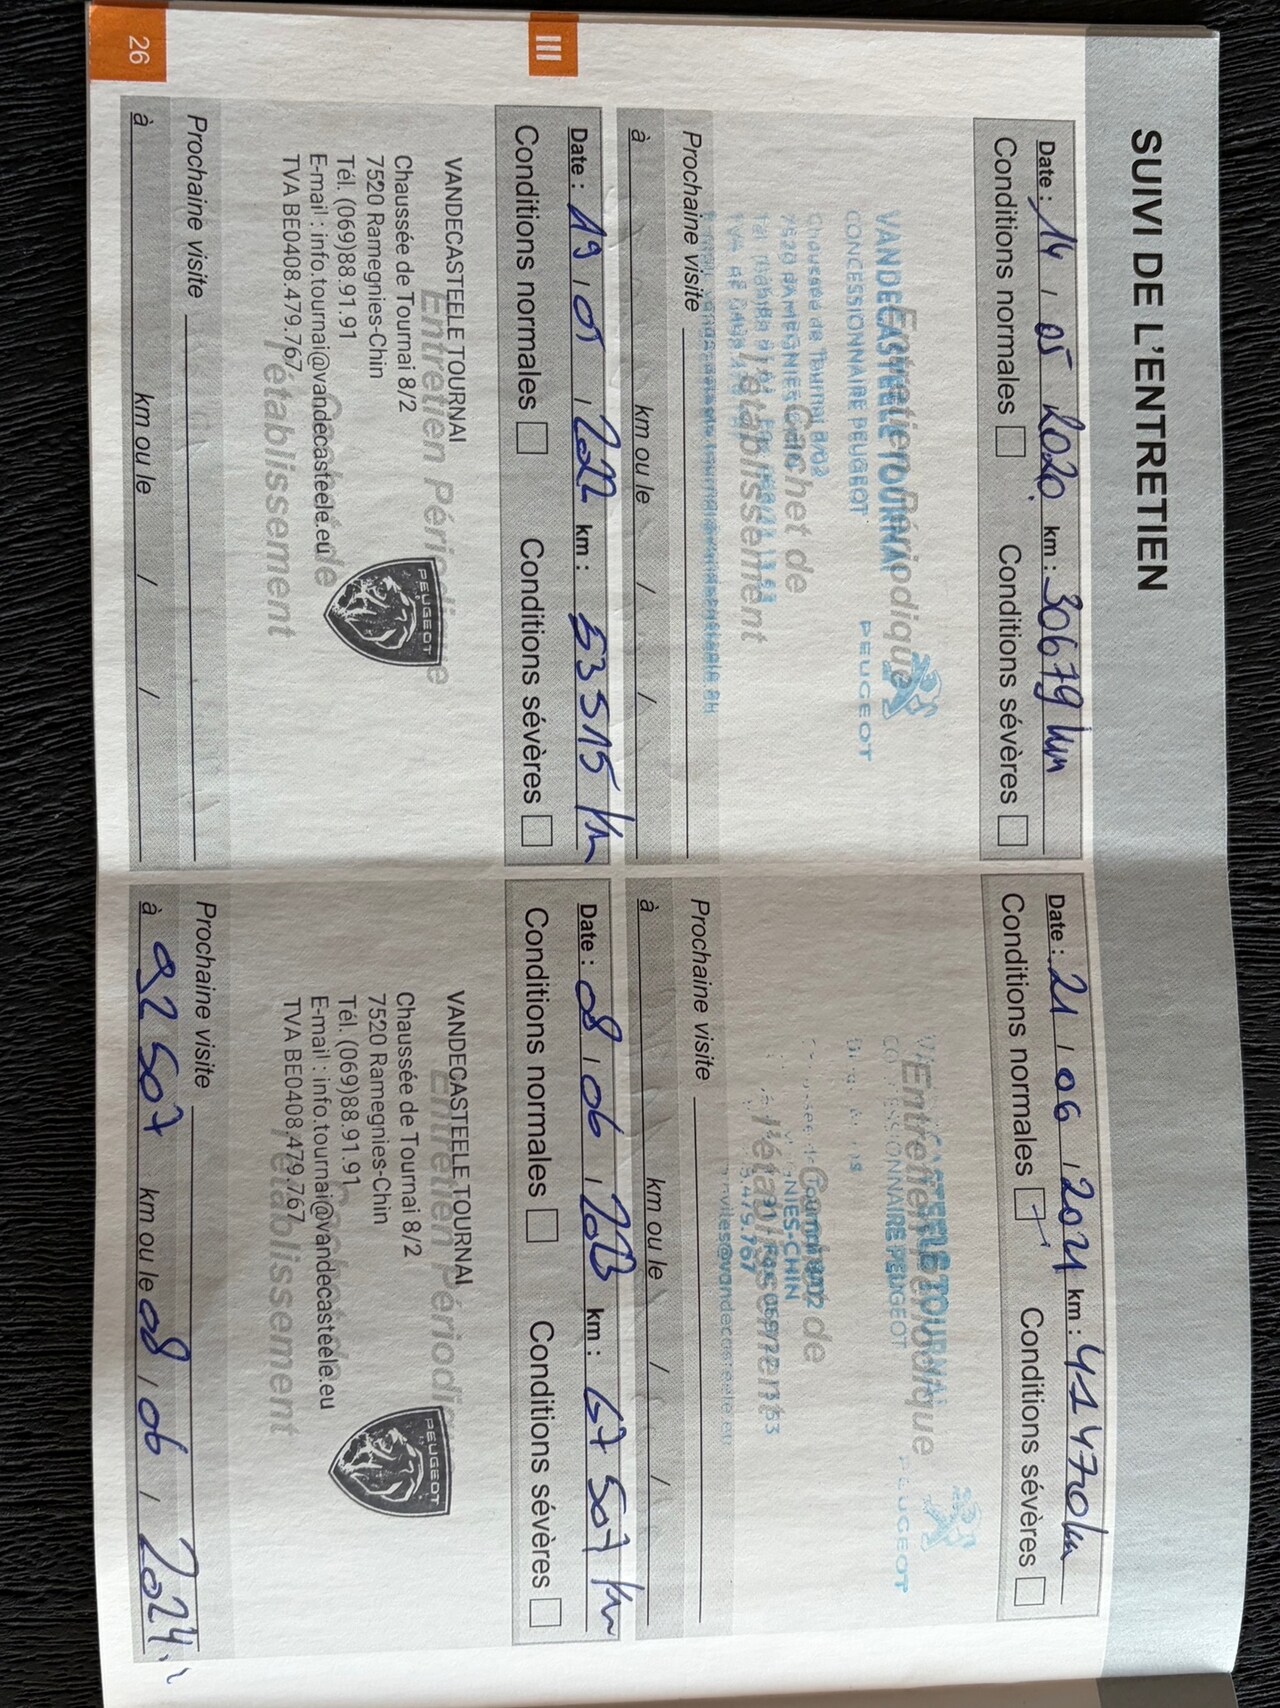 SUIVI DE L'ENTRETIEN
Date : 14 / 05 2020 km : 30679 km
Conditions normales Conditions sévères
Entretien Périodique
Cachet de
l'établissement
VANDECASTEELE TOURNAI
CONCESSIONNAIRE PEUGEOT
Chaussée de Tournai 8/02
7520 RAMEGNIES-CHIN
PEUGEOT
Prochaine visite
à km ou le / /
Date : 21 / 06 / 2021 km : 41470 km
Conditions normales Conditions sévères
Entretien Périodique
Cachet de
l'établissement
PEUGEOT
Prochaine visite
à km ou le / /
III
Date : 19 / 05 / 2022 km : 53515 km
Conditions normales Conditions sévères
Entretien Périodique
Cachet de
l'établissement
VANDECASTEELE TOURNAI
Chaussée de Tournai 8/2
7520 Ramegnies-Chin
Tél. (069)88.91.91
E-mail : info.tournai@vandecasteele.eu
TVA BE0408.479.767
PEUGEOT
Prochaine visite
à km ou le / /
Date : 08 / 06 / 2023 km : 67 507 km
Conditions normales Conditions sévères
Entretien Périodique
Cachet de
l'établissement
VANDECASTEELE TOURNAI
Chaussée de Tournai 8/2
7520 Ramegnies-Chin
Tél. (069)88.91.91
E-mail : info.tournai@vandecasteele.eu
TVA BE0408.479.767
PEUGEOT
Prochaine visite
à 92 507 km ou le 08 / 06 / 2024
26